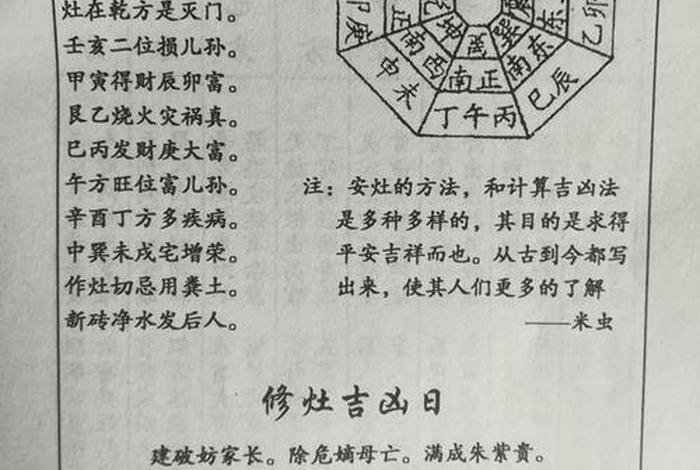 灶在乾方是灭门。
壬亥二位损儿孙。
甲寅得财辰卯富。
艮乙烧火灾祸真。
巳丙发财庚大富。
午方旺位富儿孙。
辛酉丁方多疾病。
中巽未戌宅增荣。
作灶切忌用粪土。
新砖净水发后人。
乾坤
离
巽
正
南西
南正
南东
东
庚
申未
丁午丙
巳辰
乙卯
注：安灶的方法，和计算吉凶法
是多种多样的，其目的是求得
平安吉祥而也。从古到今都写
出来，使其人们更多的了解
——米虫
修灶吉凶日
建破妨家长。除危嫡母亡。满成朱紫贵。